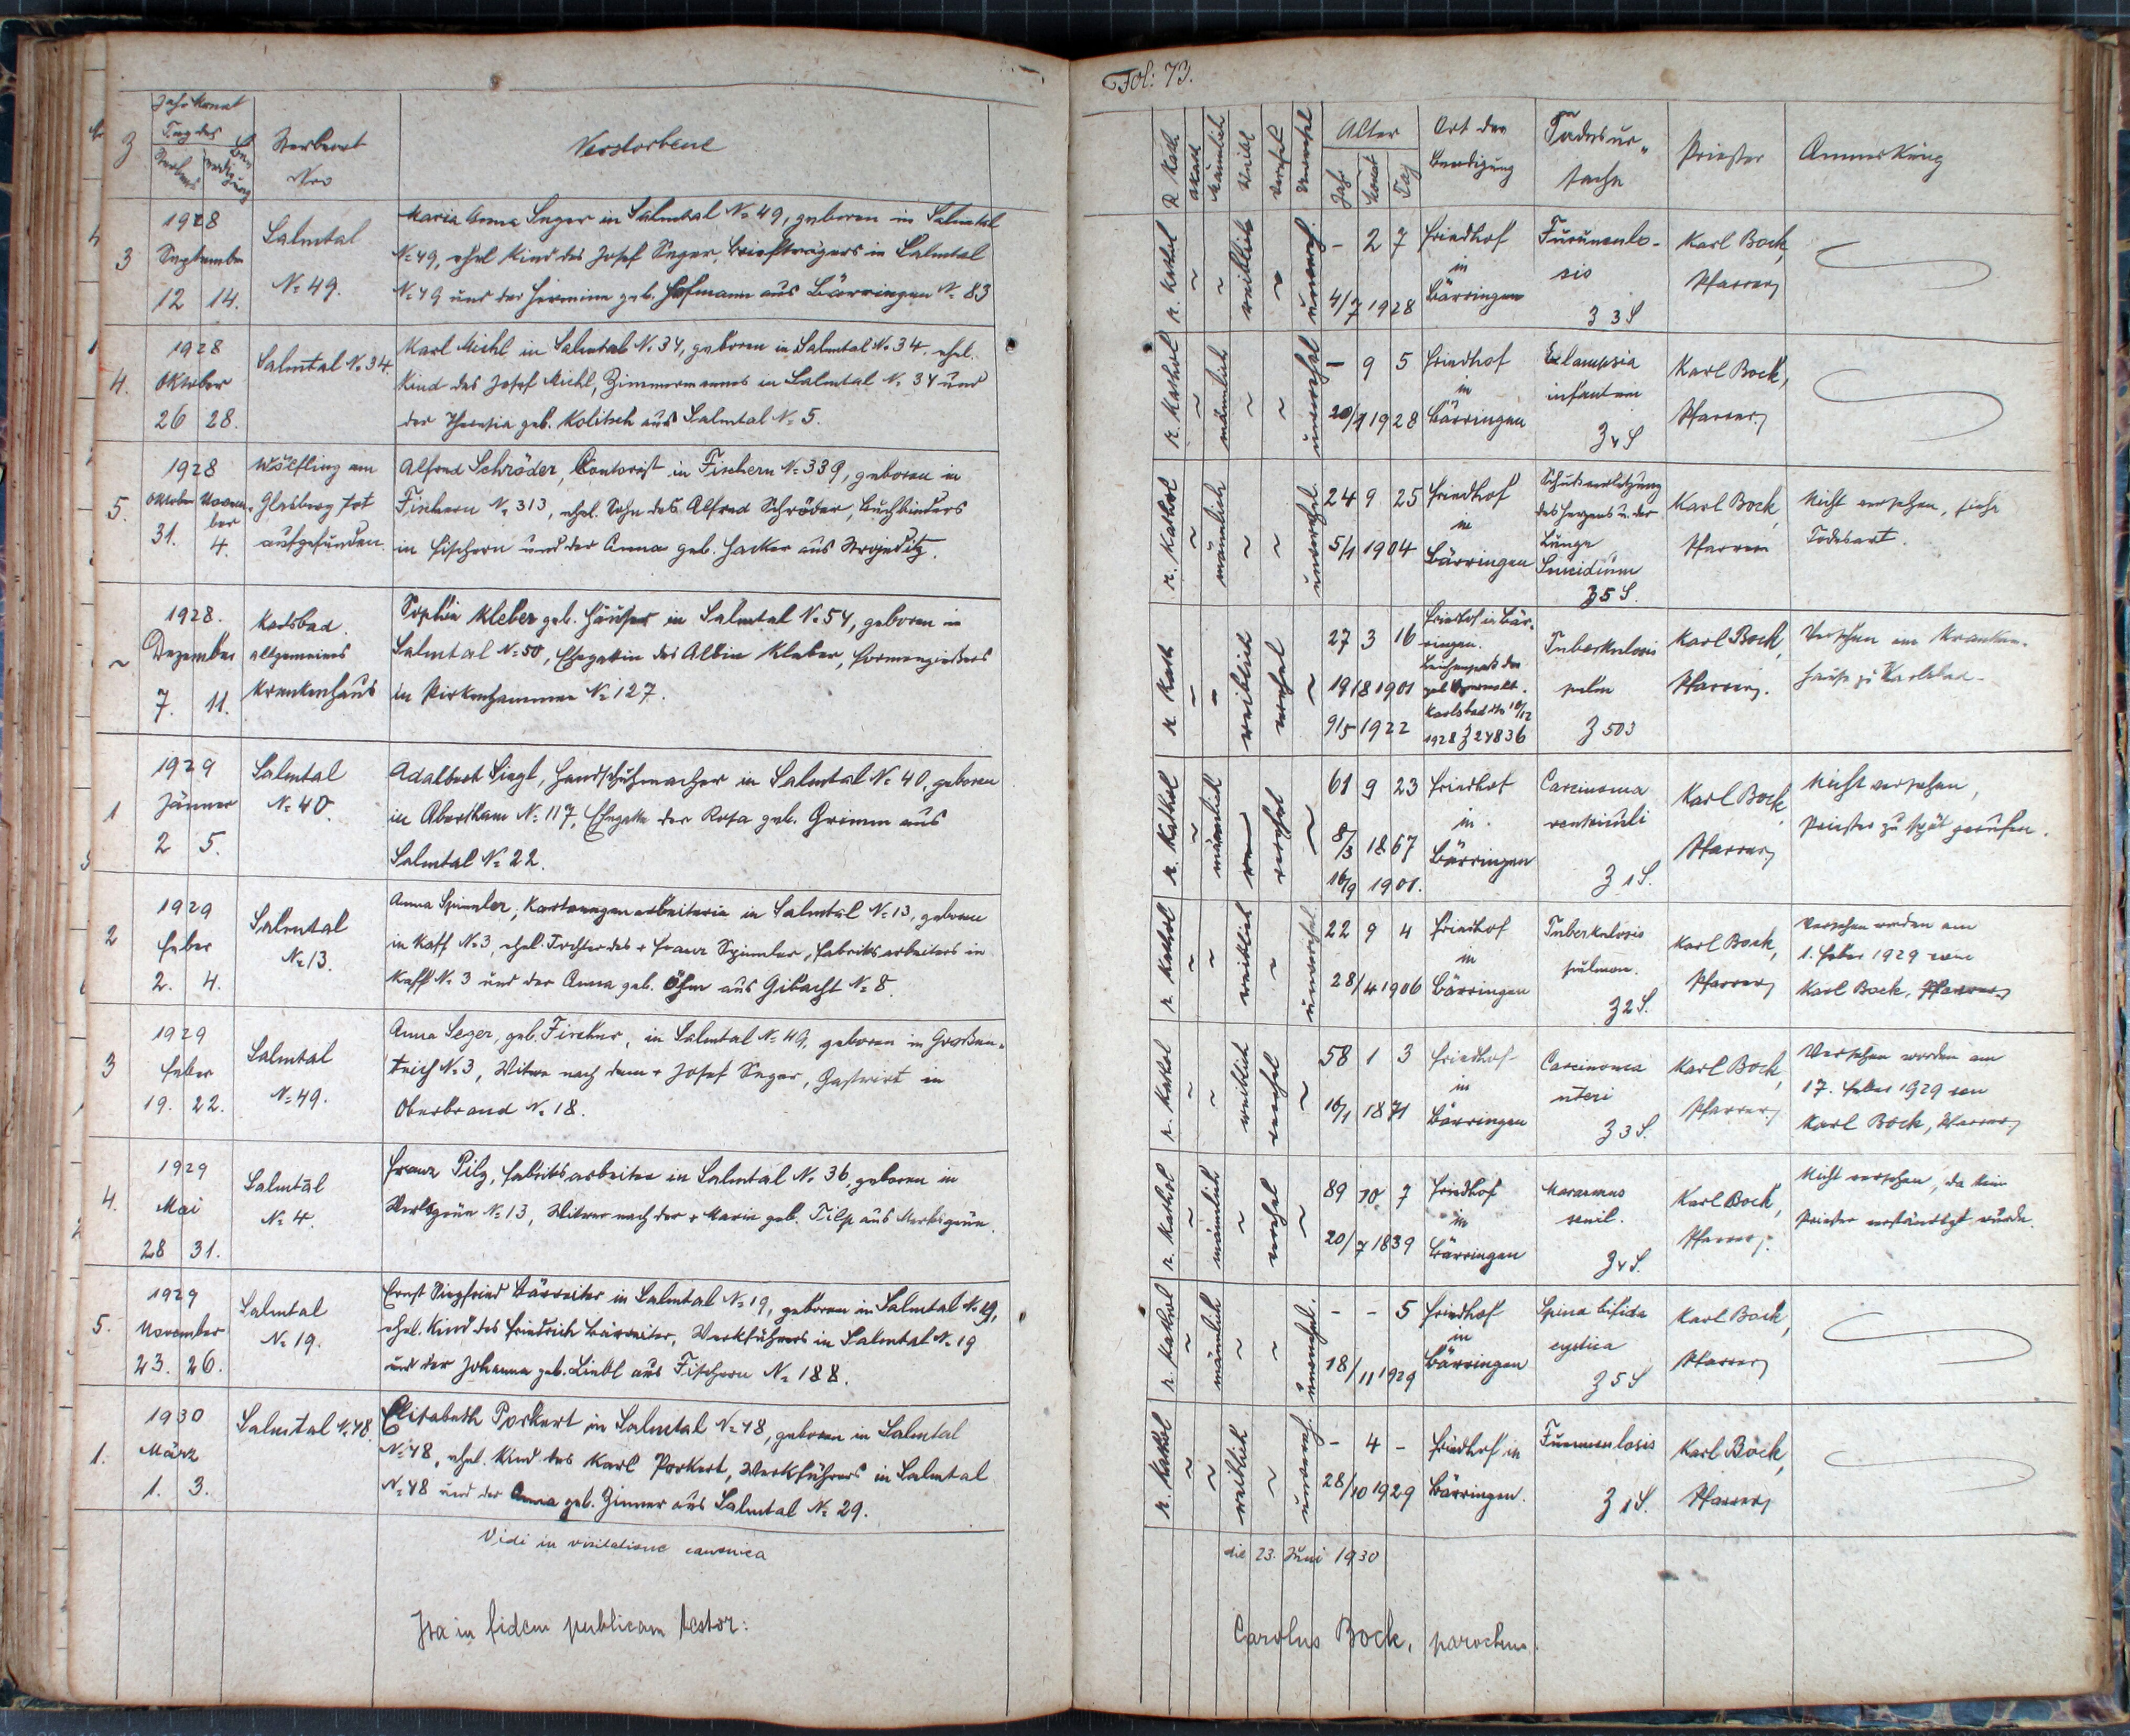 Jahr Monat
Tag des
Sterbens
Beerdigung
Z
Sterbeort
Nro
Verstorbene
3
1928
September
12 14.
Salmtal
No 49.
Maria Anna Seger in Salmtal No 49, geboren in Salmtal
No 49, ehel Kind des Josef Seger, Briefträgers in Salmtal
No 49 und der Hermine geb. Hofmann aus Bärringen No 83
4.
1928
Oktober
26 28.
Salmtal No 34.
Karl Michl in Salmtal No 34, geboren in Salmtal No 34. ehel.
Kind des Josef Michl, Zimmermannes in Salmtal No 34 und
der Theresia geb. Kolitsch aus Salmtal No 5.
5.
1928
Oktober November
31. 4.
Wölfling am
Glasberg tot
aufgefunden.
Alfred Schröder, Kontorist in Fischern No 339, geboren in
Fischern No 313, ehel. Sohn des Alfred Schröder, Buchbinders
in Fischern und der Anna geb. Hacker aus
~
1928.
Dezember
7. 11.
Karlsbad.
allgemeines
Krankenhaus
Sophia Kleber geb. Häuser in Salmtal No 54, geboren in
Salmtal No 50, Ehegattin des Albin Kleber, Formengießers
in Pirkenhammer No 127.
1
1929
Jänner
2 5.
Salmtal
No 40.
Adalbert Siegl, Handschuhmacher in Salmtal No 40, geboren
in Abertham No 117, Ehegatte der Rosa geb. Grimm aus
Salmtal No 22.
2
1929
Feber
2. 4.
Salmtal
No 13.
Anna Spinnler, Kartonagenarbeiterin in Salmtal No 13, geboren
in Kaff No 3, ehel. Tochter des + Franz Spinnler, Fabriksarbeiters in
Kaff No 3 und der Anna geb. Öhm aus Gibacht No 8.
3
1929
Feber
19. 22.
Salmtal
No 49.
Anna Seger, geb. Fischer, in Salmtal No 49, geboren in Großen-
teich No 3, Witwe nach dem + Josef Seger, Gastwirt in
Oberbrand No 18.
4.
1929
Mai
28 31.
Salmtal
No 4.
Franz Pilz, Fabriksarbeiter in Salmtal No 36, geboren in
No 13, Witwer nach der + Maria geb. Tilp aus
5.
1929
November
23. 26.
Salmtal
No 19.
Ernst Siegfried Bärreiter in Salmtal No 19, geboren in Salmtal No 19,
ehel. Kind des Friedrich Bärreiter, Werkführers in Salmtal No 19
und der Johanna geb. Liebl aus Fischern No 188.
1.
1930
März
1. 3.
Salmtal No 48.
Elisabeth Porkert in Salmtal No 48, geboren in Salmtal
No 48, ehel. Kind des Karl Porkert, Werkführers in Salmtal
No 48 und der Anna geb. Zinner aus Salmtal No 29.
Vidi in visitatione canonica
Ita in fidem publicam testor:
Fol: 73.
R Kath
akath
Männlich
Weibl
Verehel
Unverehel
Alter
Jahr Monat Tag
Ort der
Beerdigung
Todesur-
sache
Priester
Anmerkung
r. kathol ~ ~ weiblich ~ unvereh.
- 2 7
4/7 1928
Friedhof
in
Bärringen
Furunculo-
sis
Z 3 S
Karl Bock,
Pfarrer
r. kathol ~ männlich ~ ~ unverehel
- 9 5
20/1 1928
Friedhof
in
Bärringen
Eclampsia
infantum
Z 4 S
Karl Bock,
Pfarrer
r. kathol ~ männlich ~ ~ unverehel
24 9 25
5/1 1904
Friedhof
in
Bärringen
Schußverletzung
des Herzens u. der
Lunge
Suicidium
Z 5 S.
Karl Bock,
Pfarrer
Nicht versehen, siehe
Todesart.
r. kath - - weiblich verehel ~
27 3 16
19/8 1901
9/5 1922
Friedhof in Bär-
ringen.
Leichenpaß der
Karlsbad dto 10/12
1928 Z 24836
Tuberkulosis
pulm
Z 503
Karl Bock,
Pfarrer.
Versehen im Kranken-
hause zu Karlsbad.
r. kathol ~ männlich verehel ~
61 9 23
8/3 1867
16/9 1901.
Friedhof
in
Bärringen
Carcinoma
ventriculi
Z 1 S.
Karl Bock,
Pfarrer
Nicht versehen,
Priester zu spät gerufen.
r. kathol ~ ~ weiblich ~ unverehel
22 9 4
28/4 1906
Friedhof
in
Bärringen
Tuberkulosis
pulmon.
Z 2 S.
Karl Bock,
Pfarrer
Versehen worden am
1. Feber 1929 von
Karl Bock, Pfarrer
r. kathol ~ ~ weiblich verehel ~
58 1 3
16/1 1871
Friedhof
in
Bärringen
Carcinoma
uteri
Z 3 S.
Karl Bock,
Pfarrer
Versehen worden am
17. Feber 1929 von
Karl Bock, Pfarrer
r. kathol ~ männlich ~ verehel ~
89 10 7
20/7 1839
Friedhof
in
Bärringen
Marasmus
senil.
Z 4 S.
Karl Bock,
Pfarrer.
Nicht versehen, da kein
Priester verständigt wurde.
r. kathol ~ männlich ~ ~ unverehel.
- - 5
18/11 1929
Friedhof
in
Bärringen
Spina bifida
cystica
Z 5 S
Karl Bock,
Pfarrer
r. kathol ~ ~ weiblich ~ unvereh.
- 4 -
28/10 1929
Friedhof in
Bärringen.
Furunculosis
Z 1 S.
Karl Bock,
Pfarrer
die 23. Juni 1930
Carolus Bock, parochus.